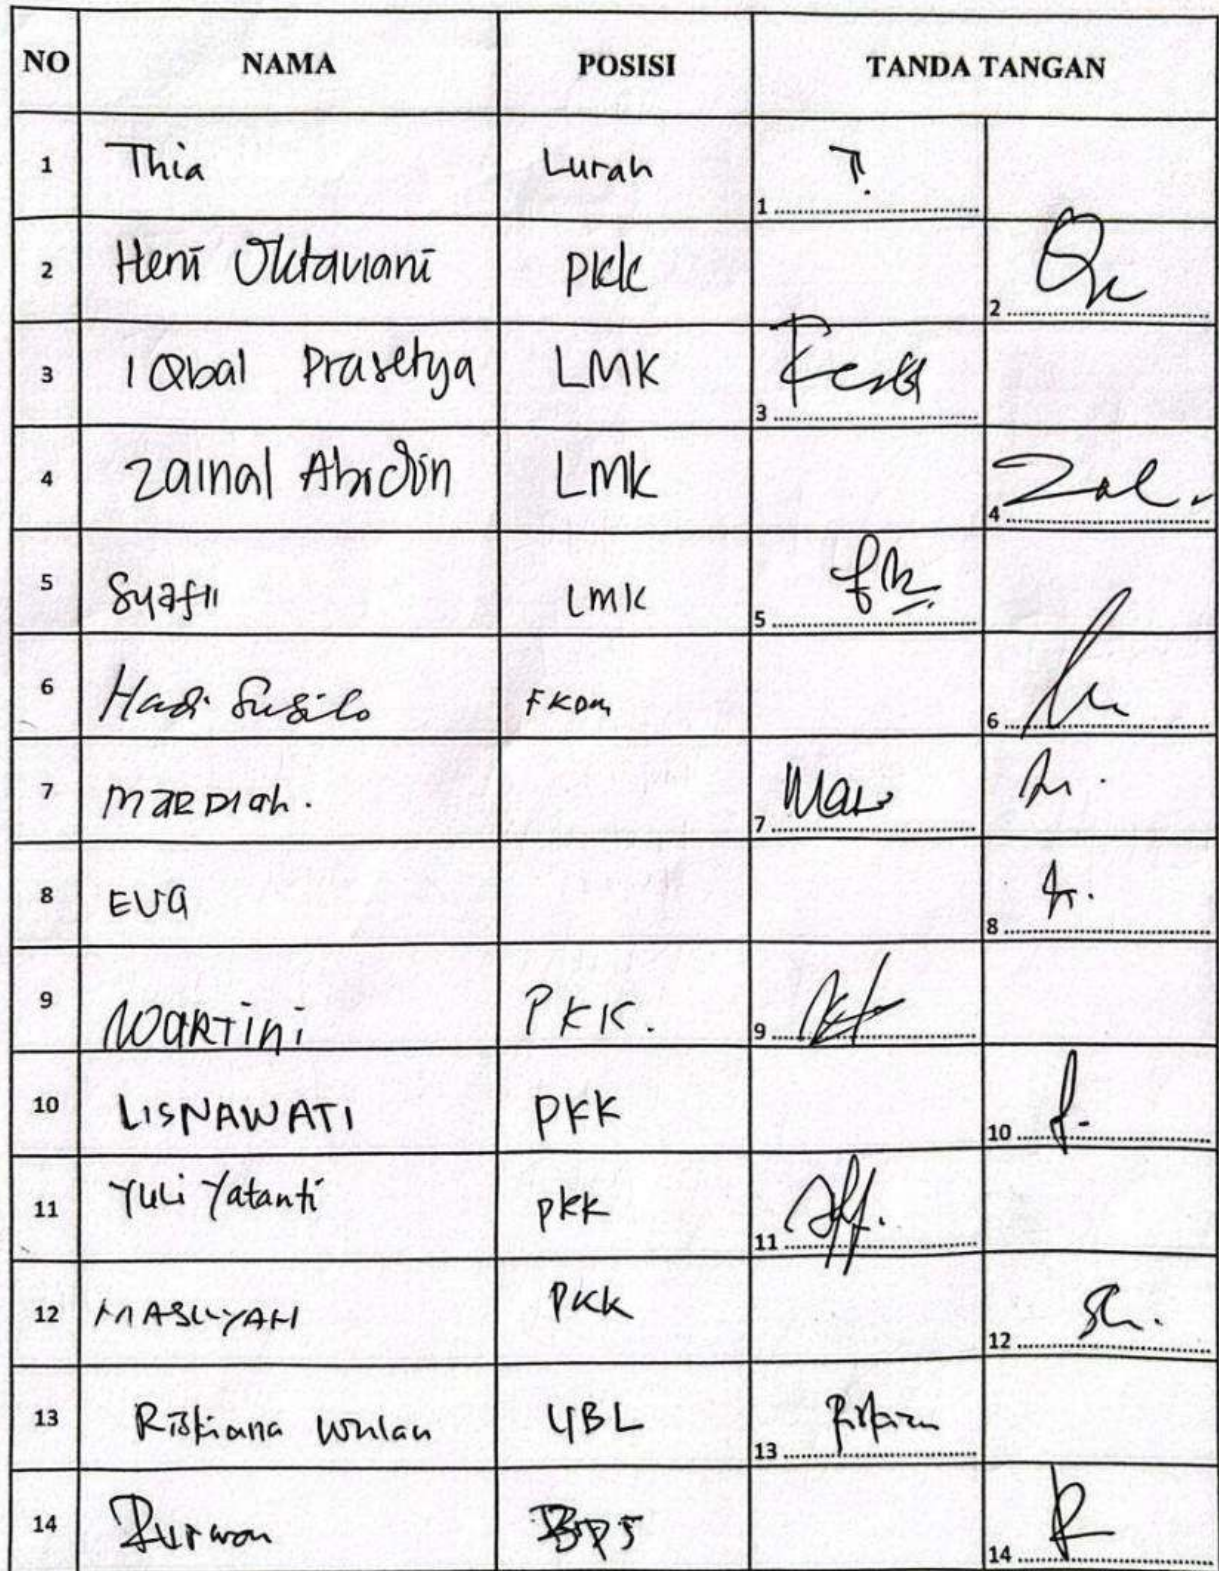 NO NAMA POSISI TANDA TANGAN
1 Thia Lurah 1
2 Heni Oktaviani PKK 2
3 IQbal Prasetya LMK 3
4 Zainal Abidin LMK 4 Zal.
5 Syafii LMK 5
6 Hadi Susilo FKDM 6
7 MARDIAH. 7 Mar
8 EVA 8
9 WARTini PKK. 9
10 LISNAWATI PKK 10
11 Yuli Yatanti PKK 11
12 MASLIYAH PKK 12
13 Riskiana Wulan UBL 13
14 BPS 14